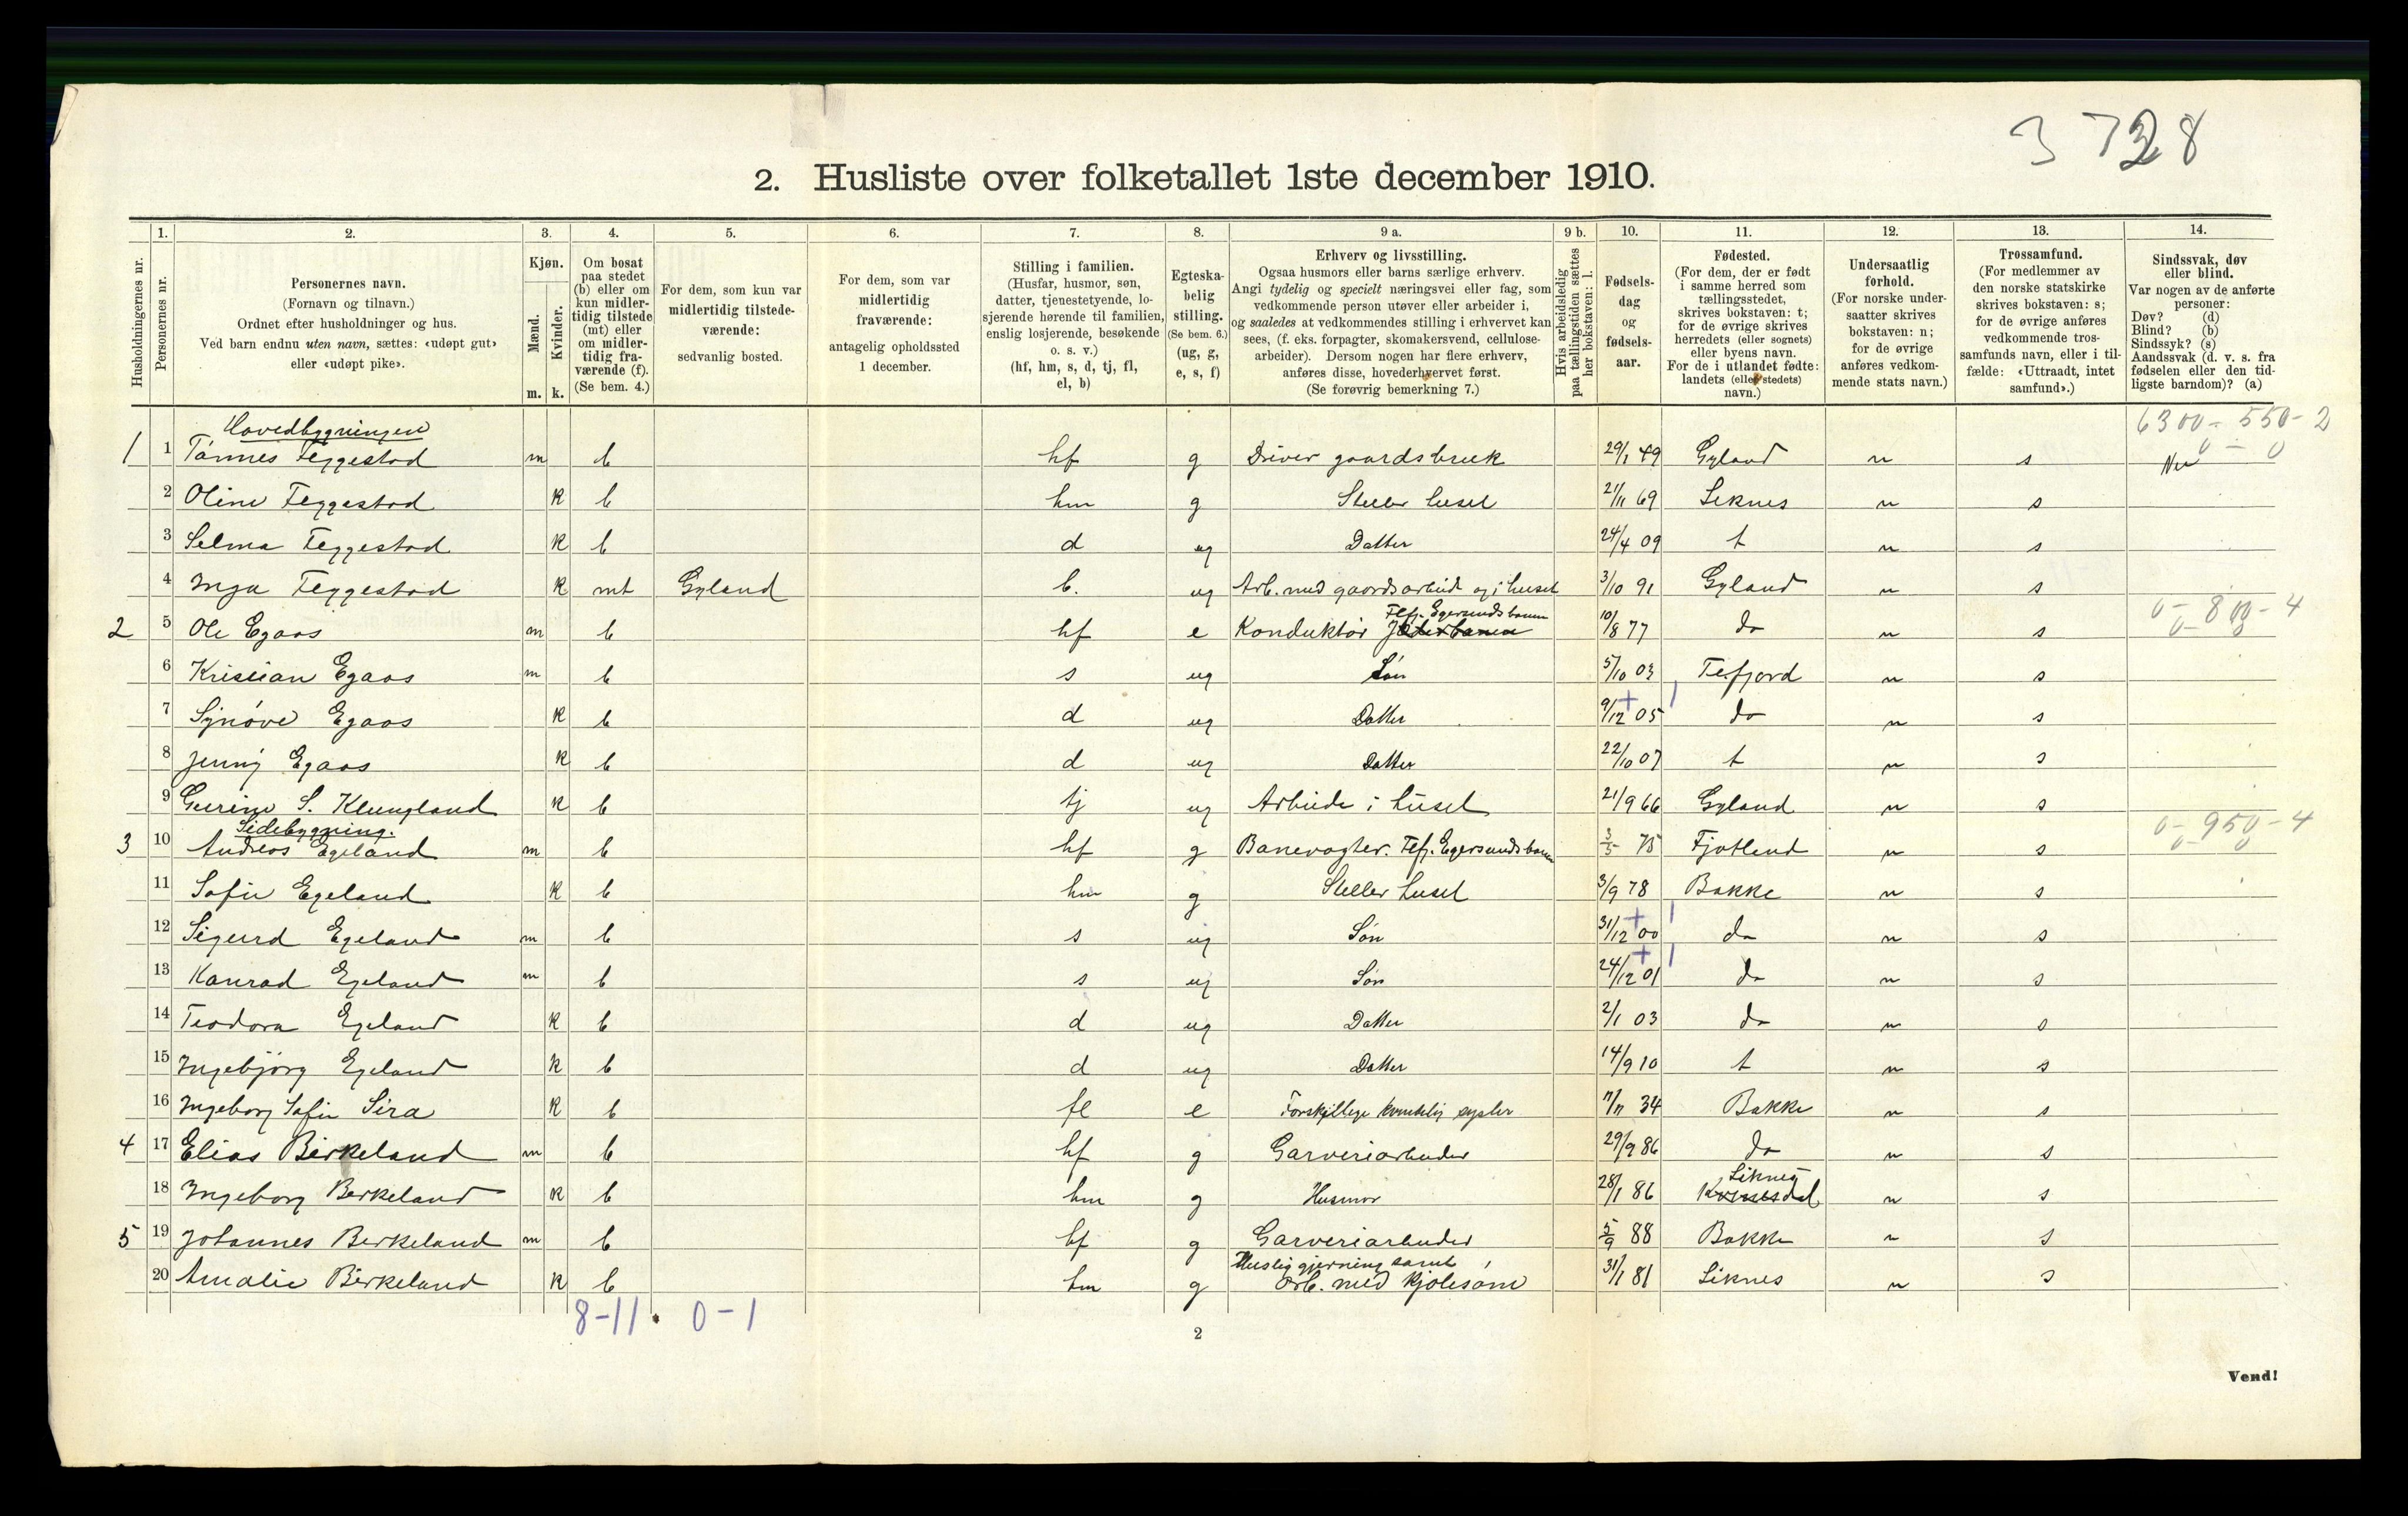 3 7328
2. Husliste over folketallet 1ste december 1910.
1. 2. 3. 4. 5. 6. 7. 8. 9 a. 9 b. 10. 11. 12. 13. 14.
Husholdningernes nr.
Personernes nr.
Personernes navn.
(Fornavn og tilnavn.)
Ordnet efter husholdninger og hus.
Ved barn endnu uten navn, sættes: «udøpt gut»
eller «udøpt pike».
Kjøn.
Mænd.
Kvinder.
m. k.
Om bosat
paa stedet
(b) eller om
kun midler-
tidig tilstede
(mt) eller
om midler-
tidig fra-
værende (f).
(Se bem. 4.)
For dem, som kun var
midlertidig tilstede-
værende:
sedvanlig bosted.
For dem, som var
midlertidig
fraværende:
antagelig opholdssted
1 december.
Stilling i familien.
(Husfar, husmor, søn,
datter, tjenestetyende, lo-
sjerende hørende til familien,
enslig losjerende, besøkende
o. s. v.)
(hf, hm, s, d, tj, fl,
el, b)
Egteska-
belig
stilling.
(Se bem. 6.)
(ug, g,
e, s, f)
Erhverv og livsstilling.
Ogsaa husmors eller barns særlige erhverv.
Angi tydelig og specielt næringsvei eller fag, som
vedkommende person utøver eller arbeider i,
og saaledes at vedkommendes stilling i erhvervet kan
sees, (f. eks. forpagter, skomakersvend, cellulose-
arbeider). Dersom nogen har flere erhverv,
anføres disse, hovederhvervet først.
(Se forøvrig bemerkning 7.)
Hvis arbeidsledig
paa tællingstiden sættes
her bokstaven: l.
Fødsels-
dag
og
fødsels-
aar.
Fødested.
(For dem, der er født
i samme herred som
tællingsstedet,
skrives bokstaven: t;
for de øvrige skrives
herredets (eller sognets)
eller byens navn.
For de i utlandet fødte:
landets (eller stedets)
navn.)
Undersaatlig
forhold.
(For norske under-
saatter skrives
bokstaven: n;
for de øvrige
anføres vedkom-
mende stats navn.)
Trossamfund.
(For medlemmer av
den norske statskirke
skrives bokstaven: s;
for de øvrige anføres
vedkommende tros-
samfunds navn, eller i til-
fælde: «Uttraadt, intet
samfund».)
Sindssvak, døv
eller blind.
Var nogen av de anførte
personer:
Døv? (d)
Blind? (b)
Sindssyk? (s)
Aandssvak (d. v. s. fra
fødselen eller den tid-
ligste barndom)? (a)
Hovedbygningen
6300 - 550 - 2
0 - 0
1 1 Tønnes Feggestad m b hf g Driver gaardsbruk 29/1 49 Gyland n s
2 Oline Feggestad k b hm g Steller huset 21/11 69 Liknes n s
3 Selma Feggestad k b d ug Datter 24/4 09 t n s
4 Inga Feggestad k mt Gyland b. ug Arb. med gaardsarbeide og i huset 3/10 91 Gyland n s
Flefj. Egersundsbanen
0 - 800 - 4
2 5 Ole Egaas m b hf e Konduktør Jæderbanen 10/8 77 do n s
6 Kristian Egaas m b s ug Søn 5/10 03 Flefjord n s
7 Synøve Egaas k b d ug Datter 9/12 05 do n s
8 Jenny Egaas k b d ug Datter 22/10 07 t n s
9 Gurine S. Klungland k b tj ug Arbeide i huset 21/9 66 Gyland n s
Sidebygning.
0 - 950 - 4
3 10 Andreas Egeland m b hf g Banevogter. Flefj. Egersundsbanen 3/5 75 Fjotland n s
11 Sofie Egeland k b hm g Steller huset 3/9 78 Bakke n s
12 Sigurd Egeland m b s ug Søn 31/12 00 do n s
13 Konrad Egeland m b s ug Søn 24/12 01 do n s
14 Teodora Egeland k b d ug Datter 2/1 03 do n s
15 Ingebjørg Egeland k b d ug Datter 14/9 10 t n s
16 Ingeborg Sofie Sira k b fl e Forskjellige kvindelig sysler 11/11 34 Bakke n s
4 17 Elias Birkeland m b hf g Garveriarbeider 29/9 86 do n s
Liknes
18 Ingeborg Berkeland k b hm g Husmor 28/1 86 Kvinesdal n s
5 19 Johannes Berkeland m b hf g Garveriarbeider 5/9 88 Bakke n s
Huslig gjerning samt
20 Amalie Birkeland k b hm g Arb. med kjolesøm 31/1 81 Liknes n s
8-11. 0-1
2
Vend!